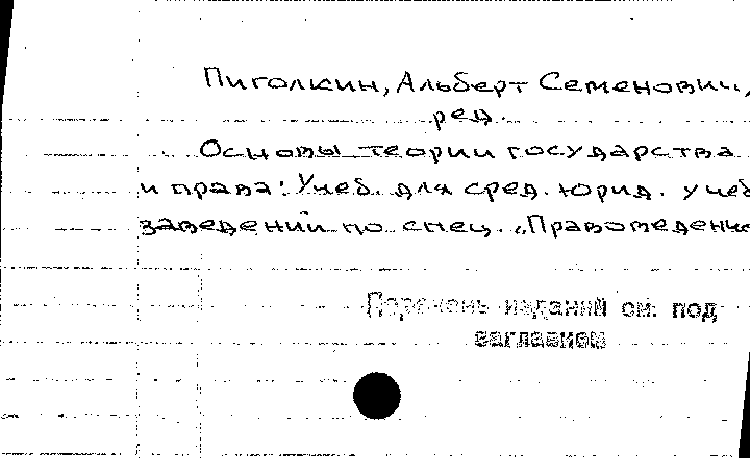 Пиголкин, Альберт Семенович,
ред.
Основы теории государства
и права: Учеб. для сред. юрид. учеб
заведений по спец. „Правоведение
Перечень изданий см. под
заглавием